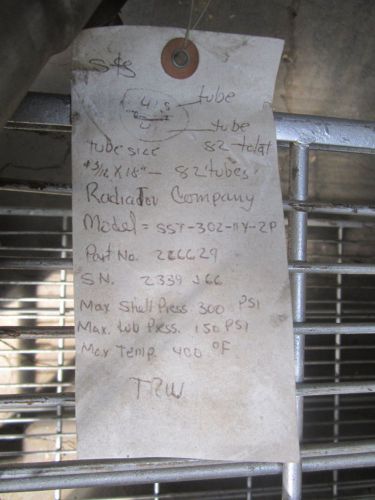 S/S
41's tube
41 tube
tube size 82 total
3/16 x 18" - 82 tubes
Radiator Company
Model = SST-302-HY-2P
Part No. 226629
S.N. 2339 J66
Max Shell Press 300 PSI
Max. Wb Press. 150 PSI
Max Temp. 400 °F
TRW